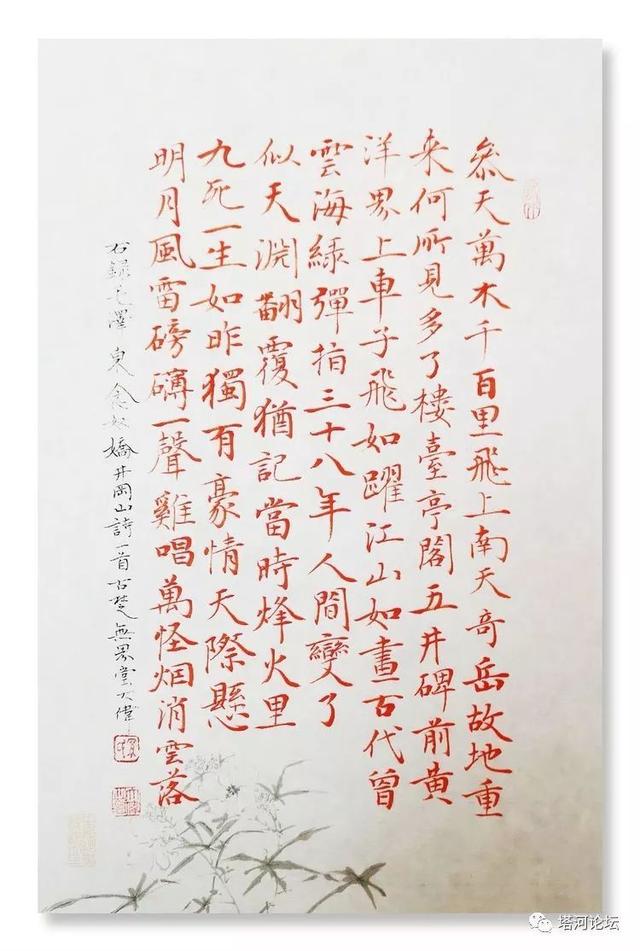 叅天萬木千百里飛上南天奇岳故地重
来何所見多了樓臺亭閣五井碑前黄
洋界上車子飛如躍江山如畫古代曾
雲海緑彈指三十八年人間變了
似天淵翻覆猶記當時烽火里
九死一生如昨獨有豪情天際懸
明月風雷磅礴一聲雞唱萬怪烟消雲落
右録毛澤東念奴嬌井岡山詩一首古楚無界堂大偉
塔河论坛